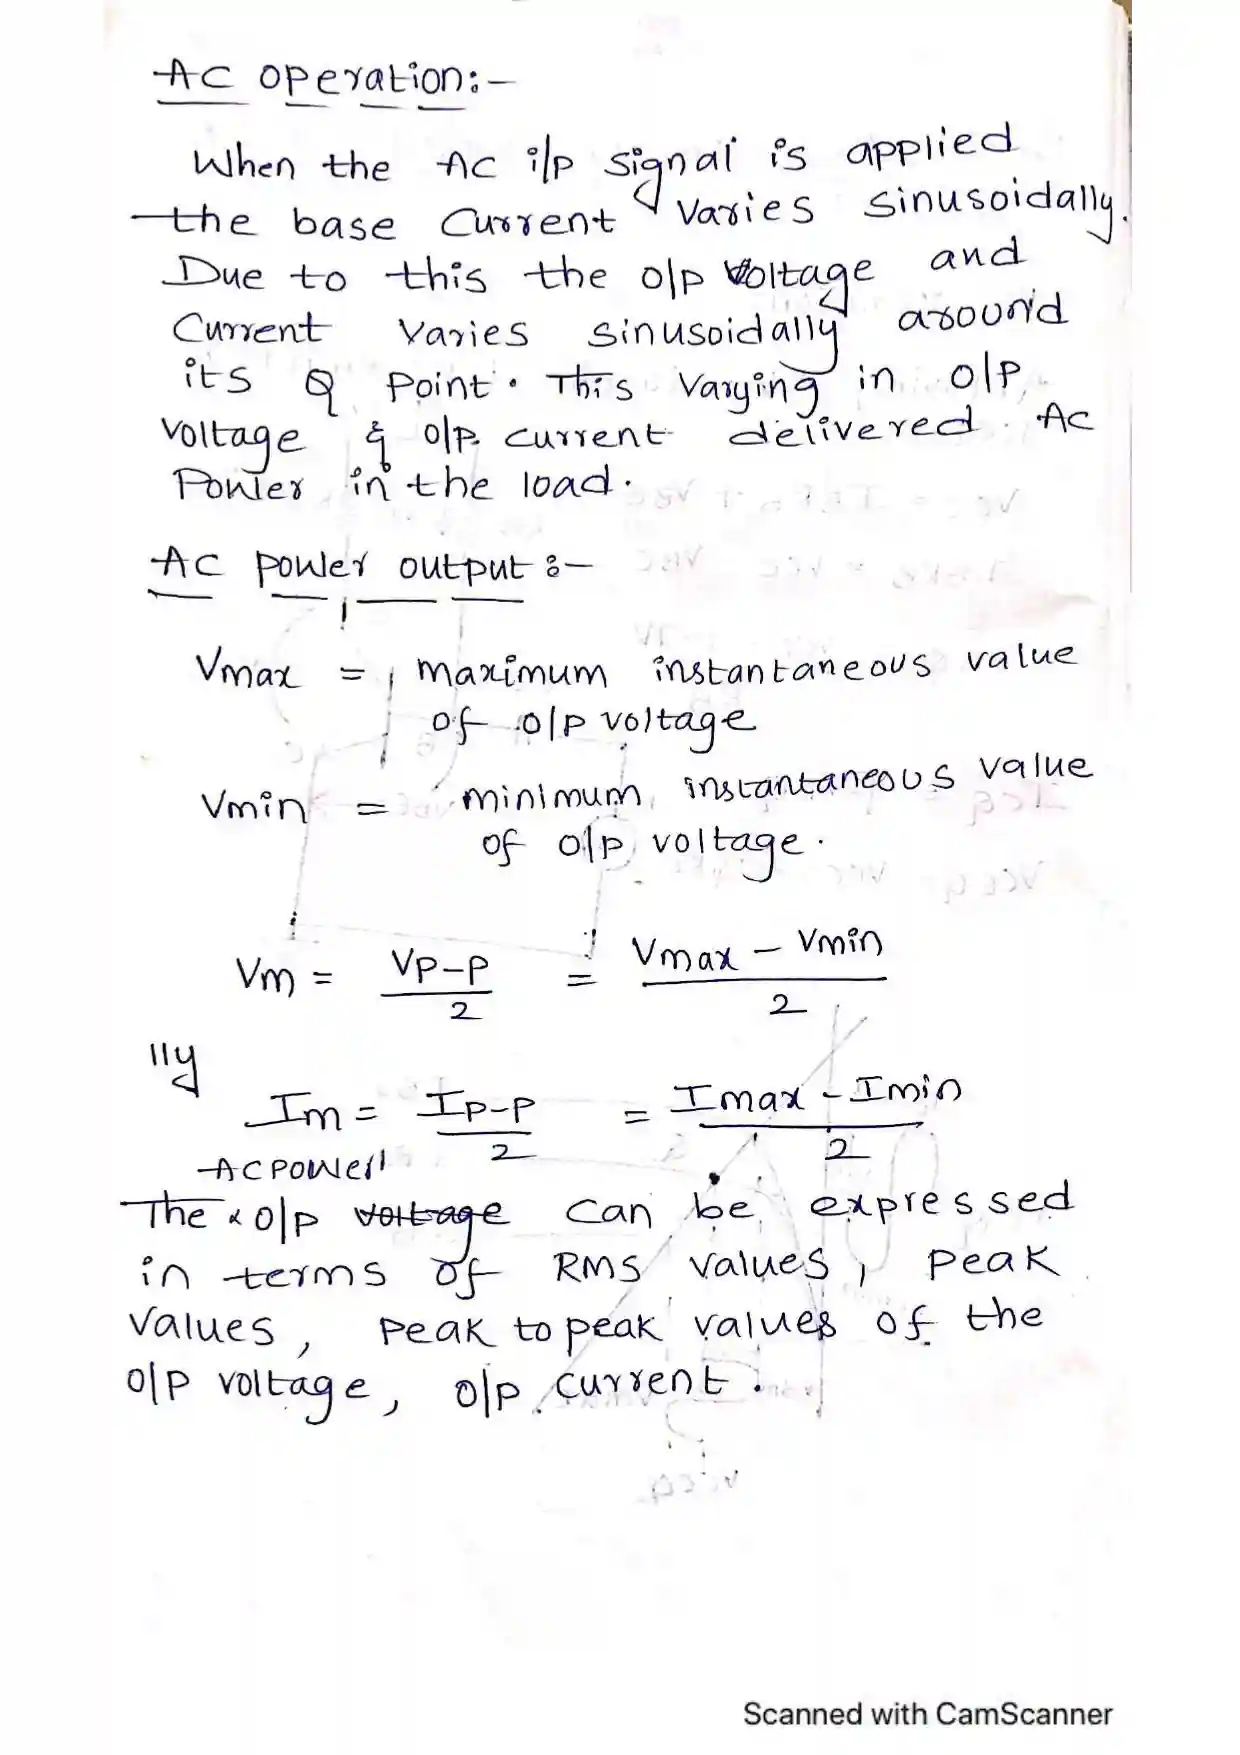 AC operation:-
When the AC i/p signal is applied
the base current varies sinusoidally.
Due to this the o/p voltage and
current varies sinusoidally around
its Q point. This varying in o/p
voltage & o/p current delivered AC
Power in the load.
AC power output :-
Vmax = maximum instantaneous value
of o/p voltage
Vmin = minimum instantaneous value
of o/p voltage.
Vm = Vp-p/2 = Vmax - Vmin/2
llly
Im = Ip-p/2 = Imax - Imin/2
AC power
The o/p voltage can be expressed
in terms of RMS values, peak
values, peak to peak values of the
o/p voltage, o/p current.
Scanned with CamScanner